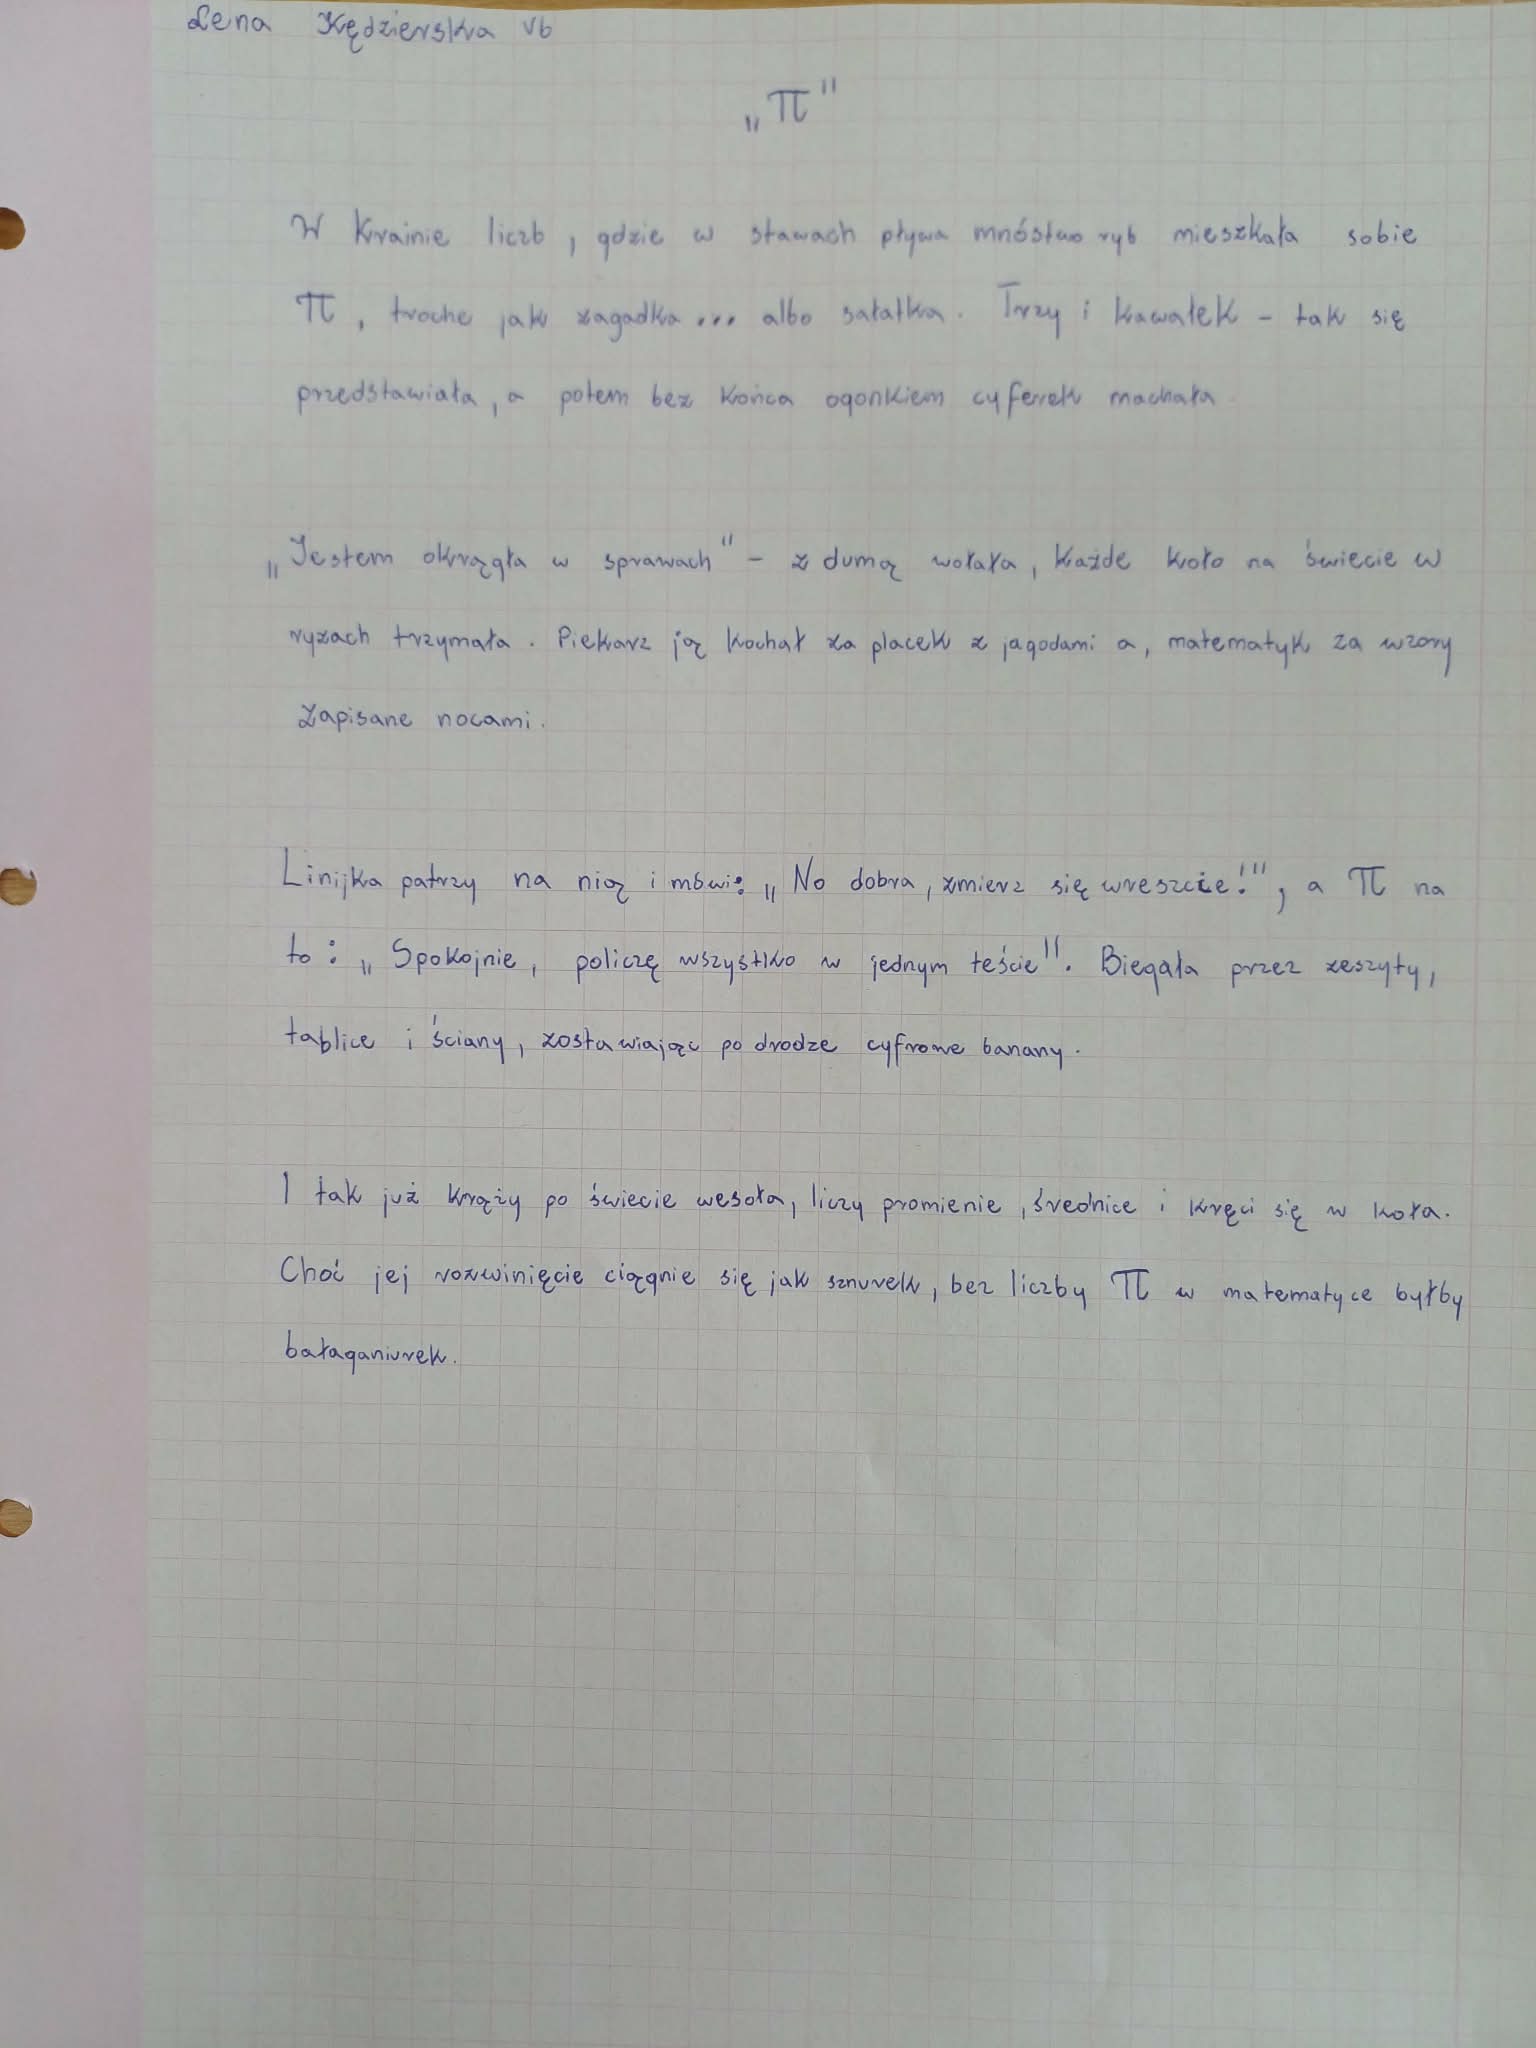 Lena Kędzierska Vb
„π"
W Krainie liczb, gdzie w stawach pływa mnóstwo ryb mieszkała sobie
π, troche jak zagadka... albo sałatka. Trzy i kawałek - tak się
przedstawiała, a potem bez końca ogonkiem cyferek machała.
„Jestem okrągła w sprawach" - z dumą wołała, każde koło na świecie w
ryzach trzymała. Piekarz ją kochał za placek z jagodami a, matematyk za wzory
zapisane nocami.
Linijka patrzy na nią i mówi: „No dobra, zmierz się wreszcie!", a π na
to: „Spokojnie, policzę wszystko w jednym teście". Biegała przez zeszyty,
tablice i ściany, zostawiając po drodze cyfrowe banany.
I tak już krąży po świecie wesoła, liczy promienie, średnice i kręci się w koła.
Choć jej rozwinięcie ciągnie się jak sznurek, bez liczby π w matematyce byłby
bałaganiurek.